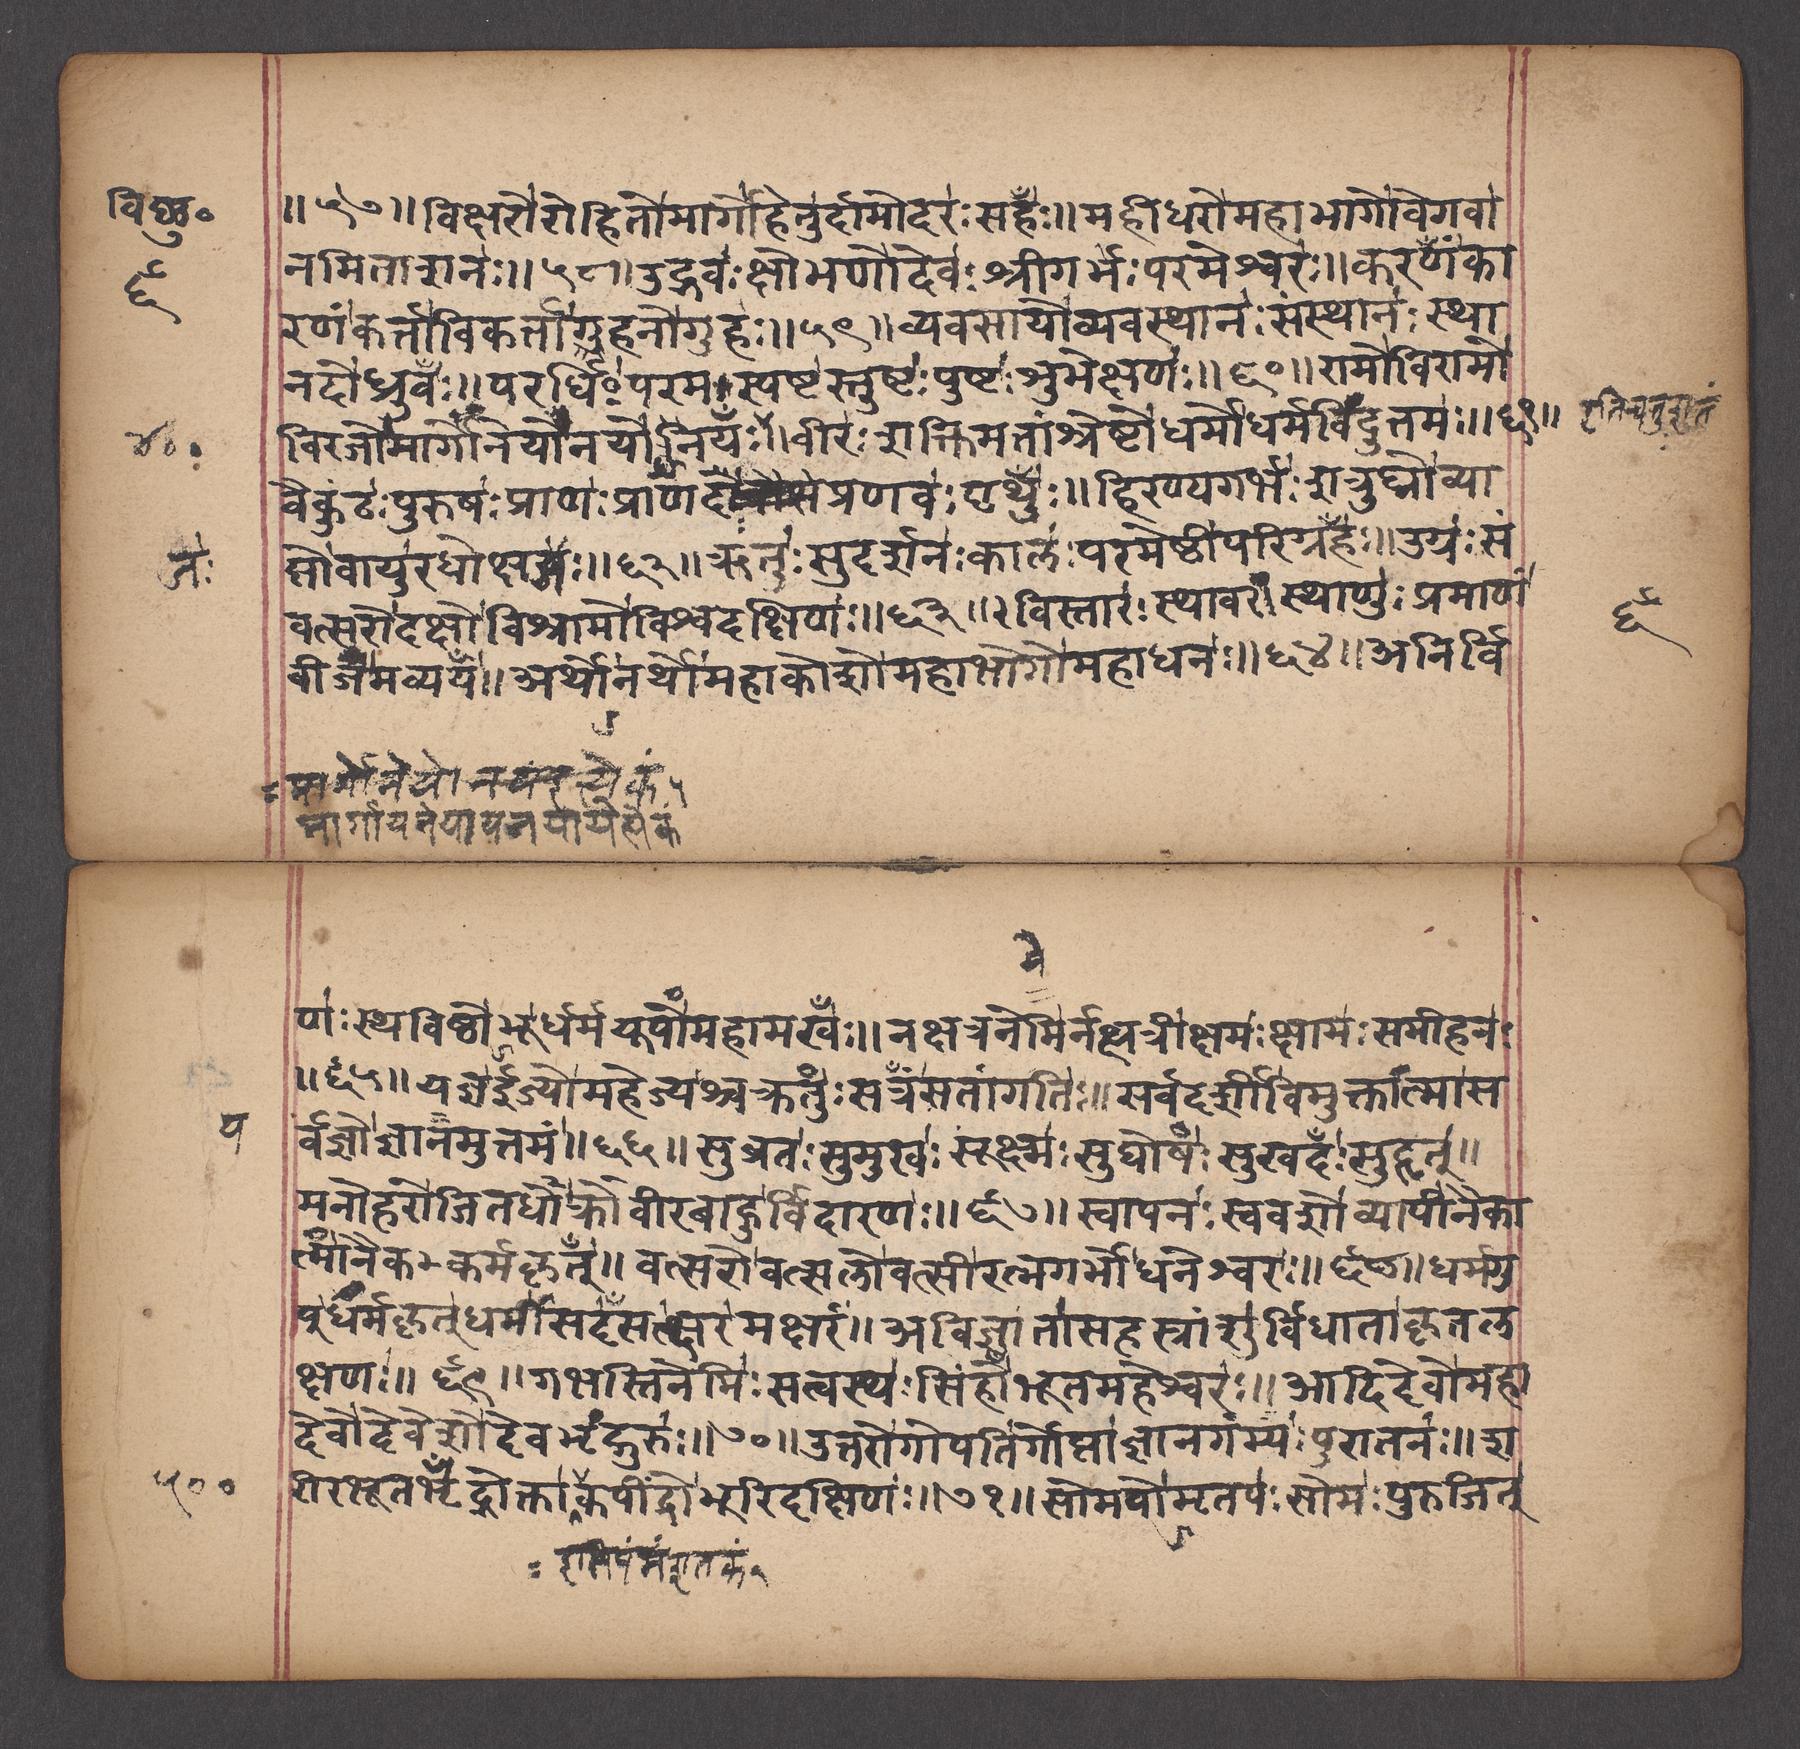 विष्णु०
॥५७॥ विक्षरोरोहितोमार्गोहेतुर्दामोदरःसहः॥ महीधरोमहाभागोवेगवा
६
नमिताशनः॥५८॥ उद्भवःक्षोभणोदेवःश्रीगर्भःपरमेश्वरः॥ करणंका
रणंकर्त्ताविकर्त्तागुहनोगुहः॥५९॥ व्यवसायोव्यवस्थानःसंस्थानःस्था
नदोध्रुवः॥ परर्धिःपरमःस्पष्टस्तुष्टःपुष्टःशुभेक्षणः॥६०॥ रामोविरामो
४००
विरजोमार्गोनेयोनयोनयः॥ वीरःशक्तिमतांश्रेष्टोधर्मोधर्मविदुत्तमः॥६१॥
इतिचतुःशतं
वैकुंठःपुरुषःप्राणःप्राणदःप्रणवःपृथुः॥ हिरण्यगर्भःशत्रुघ्नोव्या
जः
प्तोवायुरधोक्षजः॥६२॥ ऋतुःसुदर्शनःकालःपरमेष्ठीपरिग्रहः॥ उग्रःसं
वत्सरोदक्षोविश्रामोविश्वदक्षिणः॥६३॥ विस्तारःस्थावरःस्थाणुःप्रमाणं
६
बीजमव्ययं॥ अर्थोनर्थोमहाकोशोमहाभोगोमहाधनः॥६४॥ अनिर्वि
णःस्थविष्ठोभूर्धर्मयूपोमहामखः॥ नक्षत्रनेमिर्नक्षत्रीक्षमःक्षामःसमीहनः
॥६५॥ यज्ञईज्योमहेज्यश्चक्रतुःसत्रंसतांगतिः॥ सर्वदर्शीविमुक्तात्मास
प
र्वज्ञोज्ञानमुत्तमं॥६६॥ सुव्रतःसुमुखःसूक्ष्मःसुघोषःसुखदःसुहृत्॥
मनोहरोजितधोक्रोवीरबाहुर्विदारणः॥६७॥ स्वापनःस्ववशोव्यापीनैका
त्मानैककर्मकृत्॥ वत्सरोवत्सलोवत्सीरत्नगर्भोधनेश्वरः॥६८॥ धर्मगु
पूधर्मकृत्धर्मीसदसत्क्षरमक्षरं॥ अविज्ञातासहस्रांशुर्विधाताकृतल
क्षणः॥ ६९॥ गभस्तिनेमिःसत्वस्थःसिंहोभूतमहेश्वरः॥ आदिदेवोमहा
देवोदेवेशोदेवभृद्गुरुः॥७०॥ उत्तरोगोपतिर्गोप्ताज्ञानगम्यःपुरातनः॥ श
५००
रीरभूतभृद्भोक्ताकपींद्रोभूरिदक्षिणः॥७१॥ सोमपोमृतपःसोमःपुरुजित्